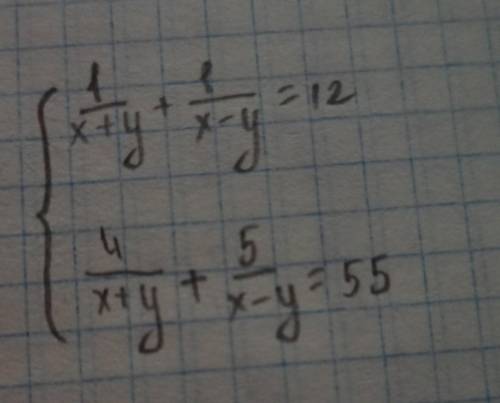 1/(x+y) + 1/(x-y) = 12
4/(x+y) + 5/(x-y) = 55